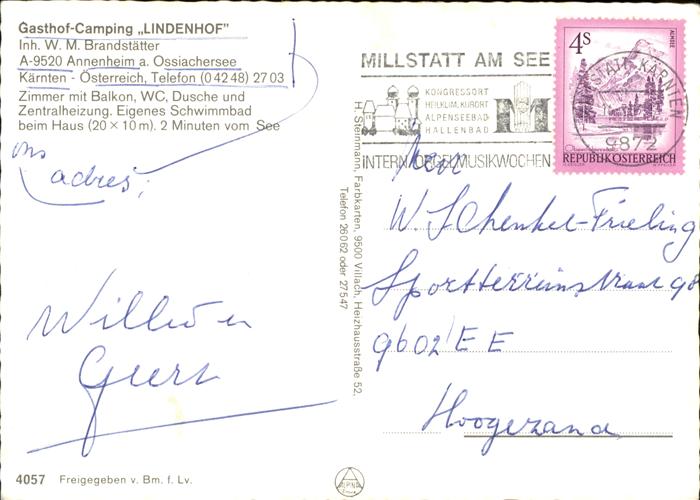 Gasthof-Camping „LINDENHOF"
Inh. W. M. Brandstätter
A-9520 Annenheim a. Ossiachersee
Kärnten - Österreich, Telefon (0 42 48) 27 03
Zimmer mit Balkon, WC, Dusche und
Zentralheizung. Eigenes Schwimmbad
beim Haus (20 × 10 m). 2 Minuten vom See
ons
adres;
Geert
4057 Freigegeben v. Bm. f. Lv.
H. Steinmann, Farbkarten, 9500 Villach, Heizhausstraße 52,
Telefon 26062 oder 27547
MILLSTATT AM SEE
KONGRESSORT
HEILKLIM. KURORT
ALPENSEEBAD
HALLENBAD
INTERN. ORGELMUSIKWOCHEN
4 S
ALMSEE
REPUBLIK ÖSTERREICH
9872
W. Schenkel-Frieling
9602 EE
Hoogezand